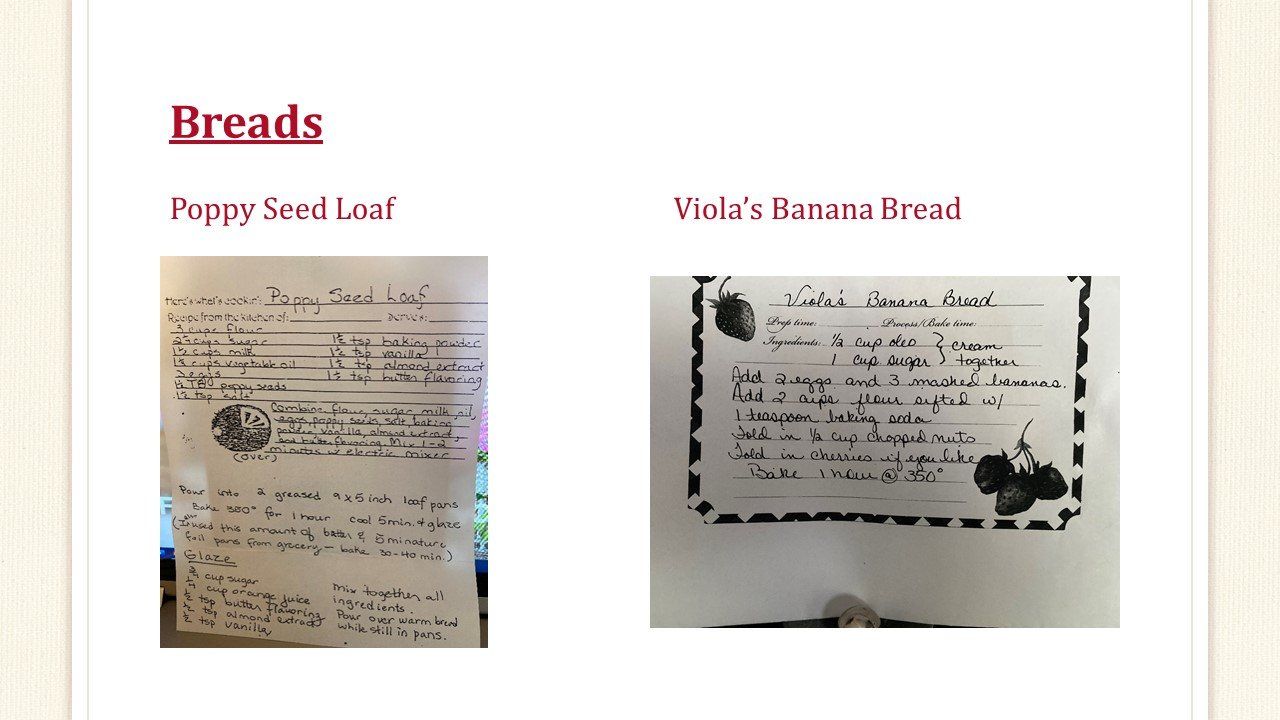 Breads
Poppy Seed Loaf
Here's what's cookin': Poppy Seed Loaf
Recipe from the kitchen of: Serves:
3 cups flour
2¼ cups sugar 1½ tsp baking powder
1½ cups milk 1½ tsp vanilla
1½ cups vegetable oil 1½ tsp almond extract
3 eggs 1½ tsp butter flavoring
1½ TBO poppy seeds
1½ tsp salt
Combine flour, sugar, milk, oil,
eggs, poppy seeds, salt, baking
powder, vanilla, almond extract,
and butter flavoring. Mix 1-2
minutes w electric mixer
(over)
Pour into 2 greased 9x5 inch loaf pans
Bake 350° for 1 hour cool 5 min. & glaze
(I used this amount of batter & 5 minature
foil pans from grocery - bake 30-40 min.)
Glaze
¾ cup sugar
¼ cup orange juice
½ tsp butter flavoring
½ tsp almond extract
½ tsp vanilla
Mix together all
ingredients.
Pour over warm bread
while still in pans.
Viola's Banana Bread
Viola's Banana Bread
Prep time: Process/Bake time:
Ingredients: ½ cup oleo } cream
1 cup sugar } together
Add 2 eggs and 3 mashed bananas.
Add 2 cups flour sifted w/
1 teaspoon baking soda
Fold in ½ cup chopped nuts
Fold in cherries if you like
Bake 1 hour @ 350°